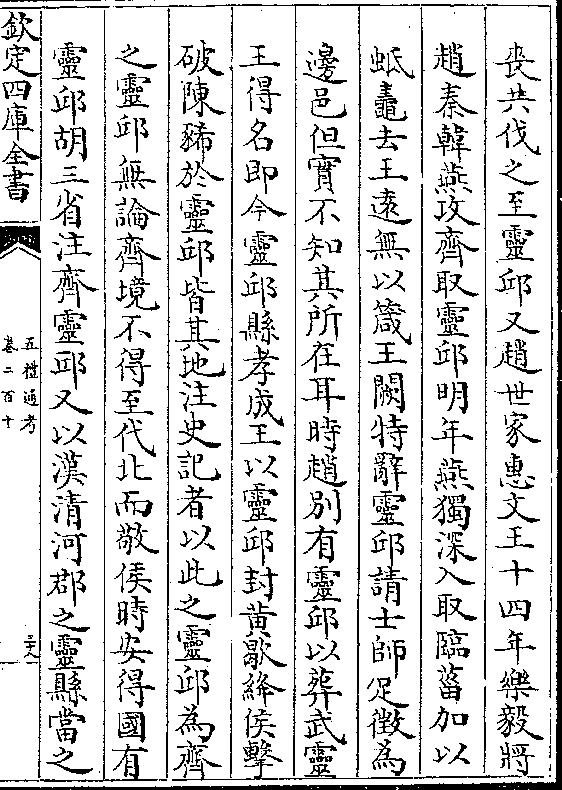 喪共伐之至靈邱又趙世家惠文王十四年樂毅將
趙秦韓燕攻齊取靈邱明年燕獨深入取臨菑加以
蚳鼃去王逺無以箴王闕特辭靈邱請士師足徴為
邊邑但實不知其所在耳時趙别有靈邱以葬武靈
王得名即今靈邱縣孝成王以靈邱封黄歇絳侯擊
破陳豨於靈邱皆其地注史記者以此之靈邱為齊
之靈邱無論齊境不得至代北而敬侯時安得國有
靈邱胡三省注齊靈邱又以漢清河郡之靈縣當之
欽定四庫全書
五禮通考
卷二百十
二十八